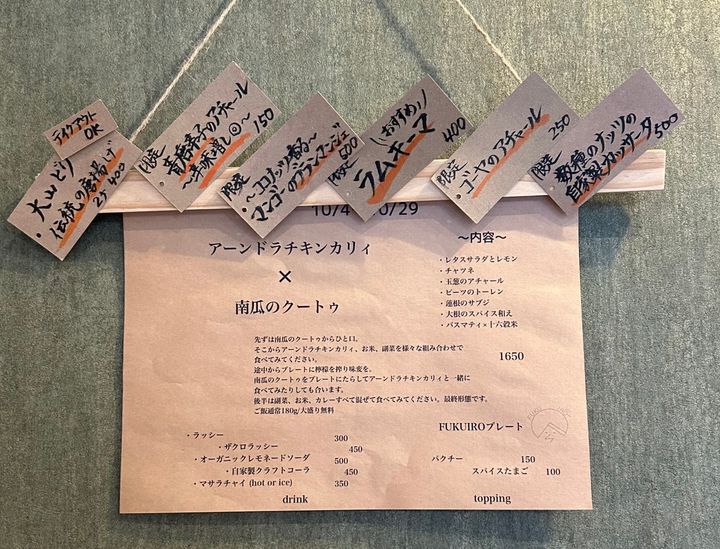 テイクアウト
OK
大山どり
伝統の唐揚げ
2ケ 400
限定
青唐辛子のアチャール
〜辛味増し◎〜
150
限定
〜ココナッツ香る〜
マンゴーのブランマンジェ
500
限定
\おすすめ!/
ラムキーマ
400
限定
ゴーヤのアチャール
250
限定
数種のナッツの
自家製カッサータ
500
10/4
0/29
アーンドラチキンカリィ
×
南瓜のクートゥ
〜内容〜
・レタスサラダとレモン
・チャツネ
・玉葱のアチャール
・ビーツのトーレン
・蓮根のサブジ
・大根のスパイス和え
・バスマティ×十六穀米
1650
先ずは南瓜のクートゥからひと口。
そこからアーンドラチキンカリィ、お米、副菜を様々な組み合わせで
食べてみてください。
途中からプレートに檸檬を搾り味変を。
南瓜のクートゥをプレートにたらしてアーンドラチキンカリィと一緒に
食べてみたりしても合います。
後半は副菜、お米、カレーすべて混ぜて食べてみてください。最終形態です。
ご飯通常180g/大盛り無料
FUKUIROプレート
・ラッシー 300
・ザクロラッシー 450
・オーガニックレモネードソーダ 500
・自家製クラフトコーラ 450
・マサラチャイ (hot or ice) 350
drink
パクチー 150
スパイスたまご 100
topping